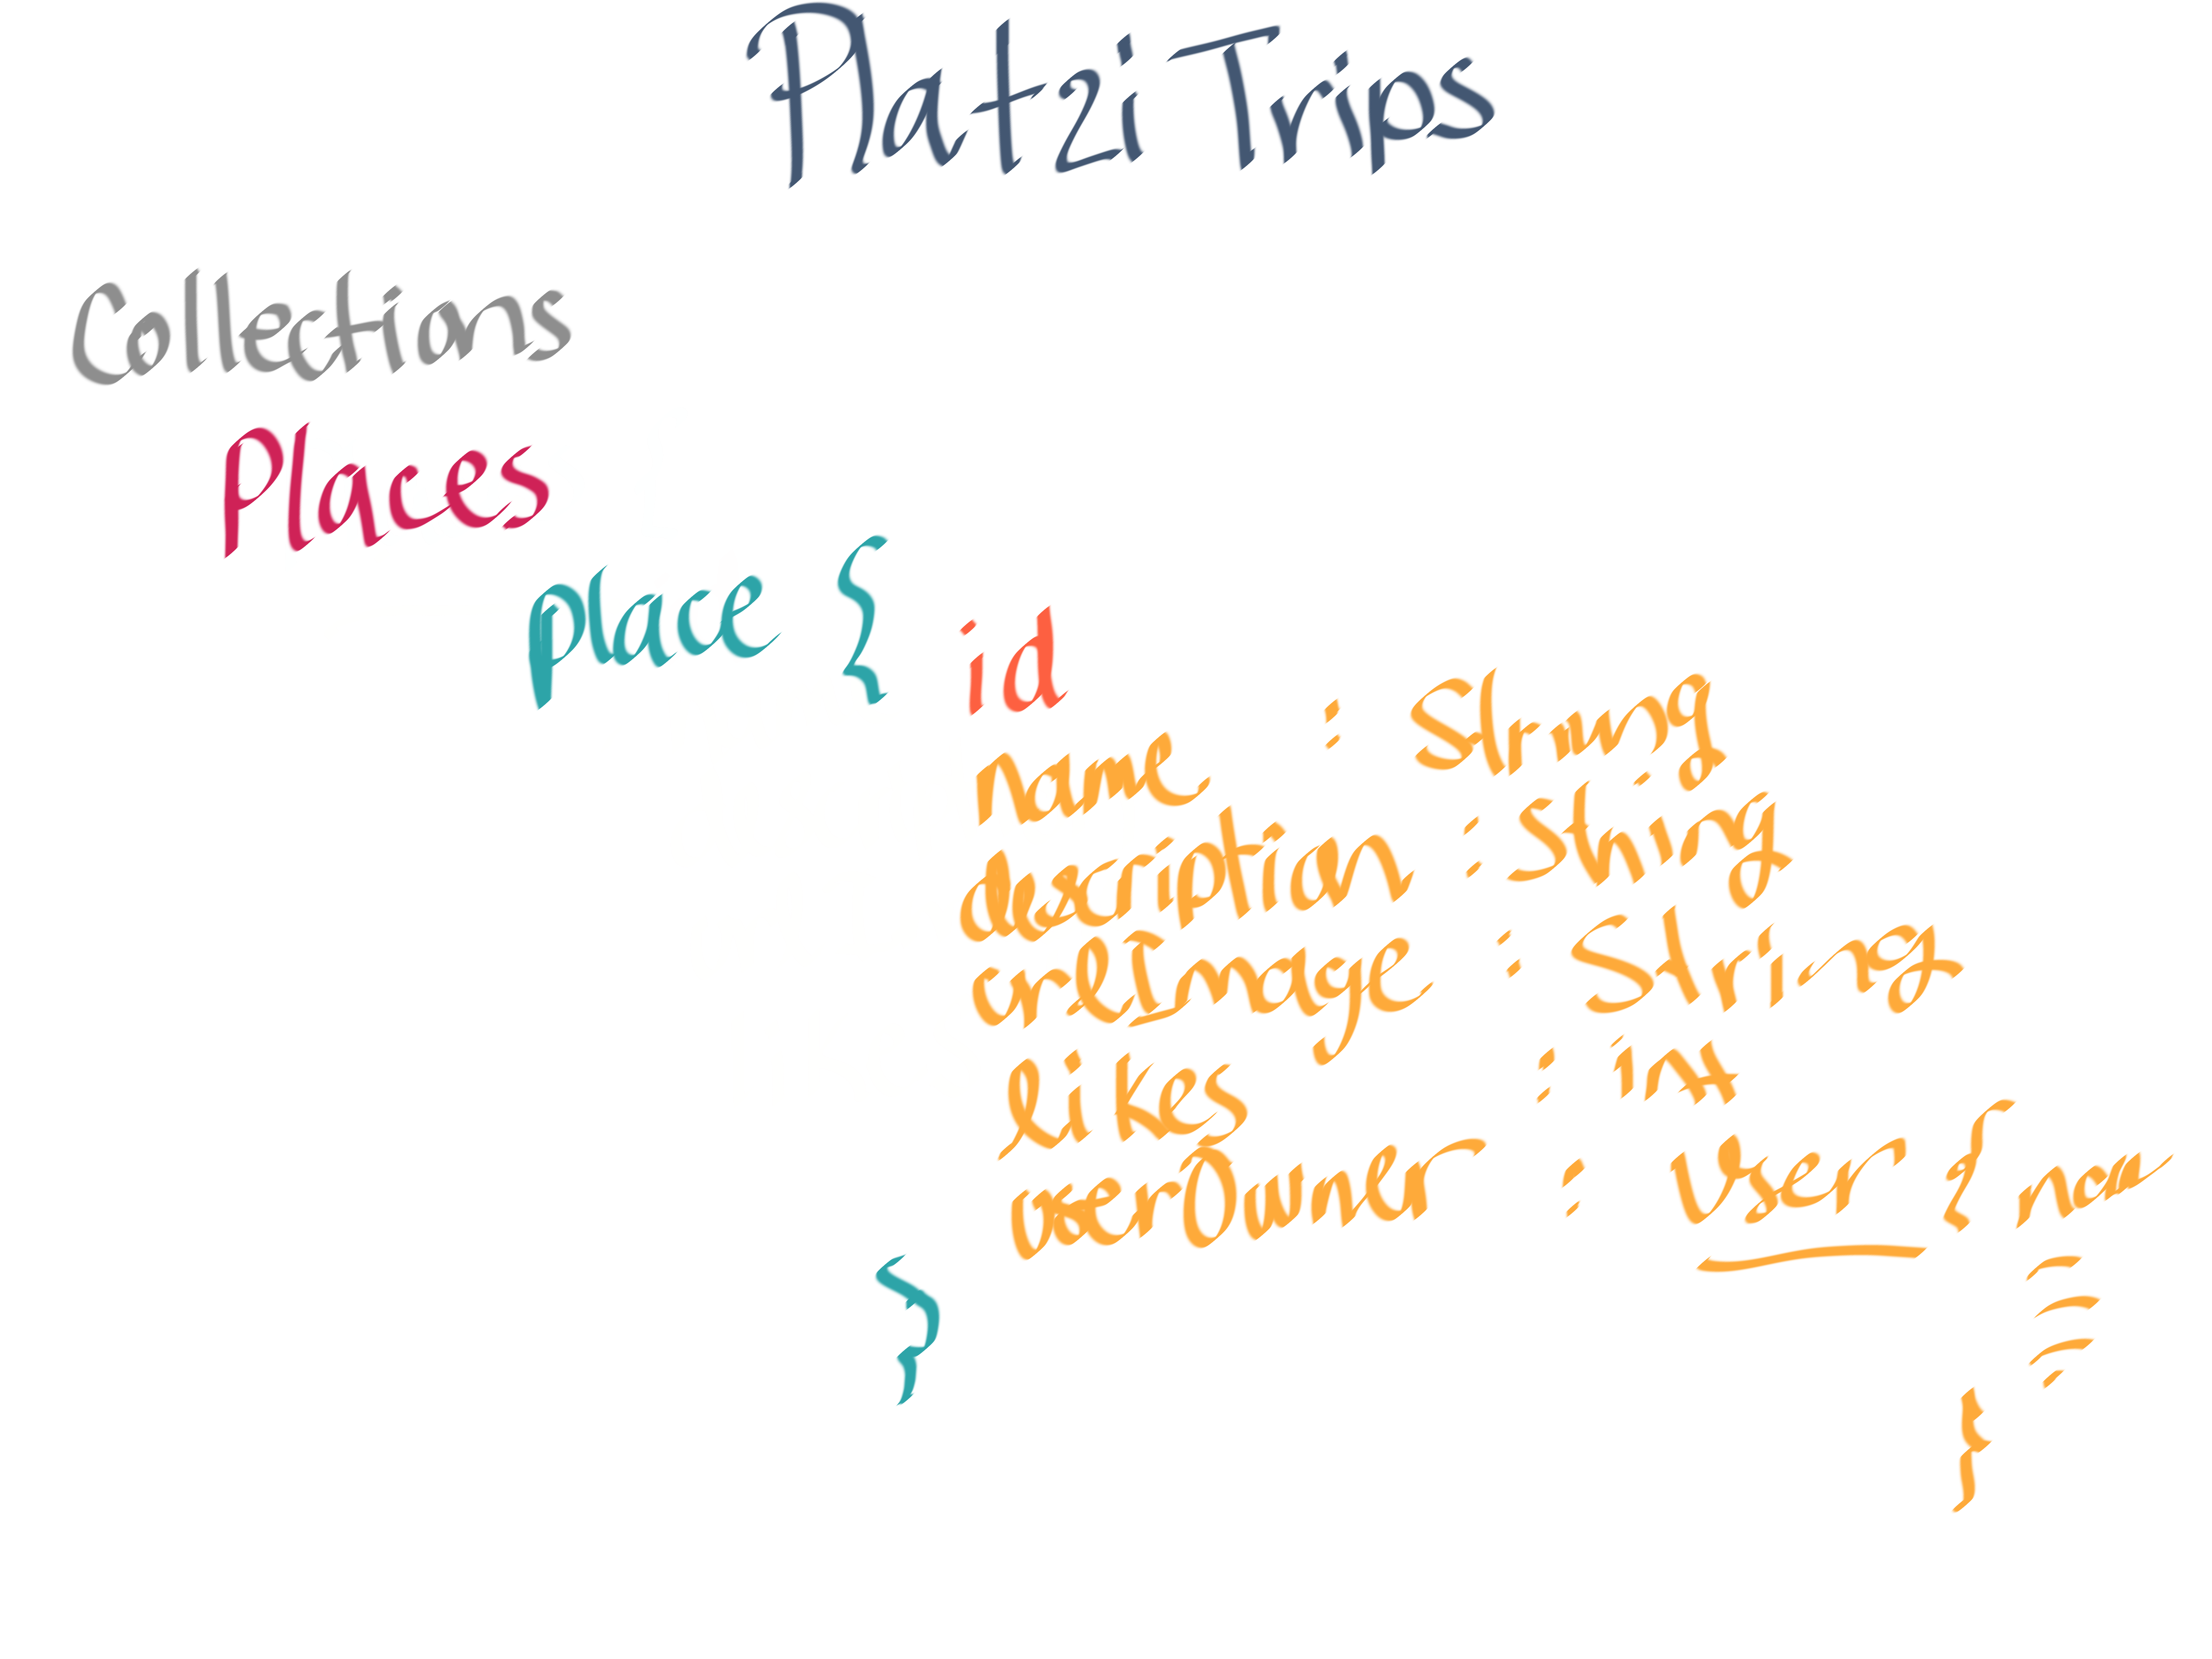 Platzi Trips
Collections
Places
place { id
name : String
description : String
urlImage : String
likes : int
userOwner : User {
}
}